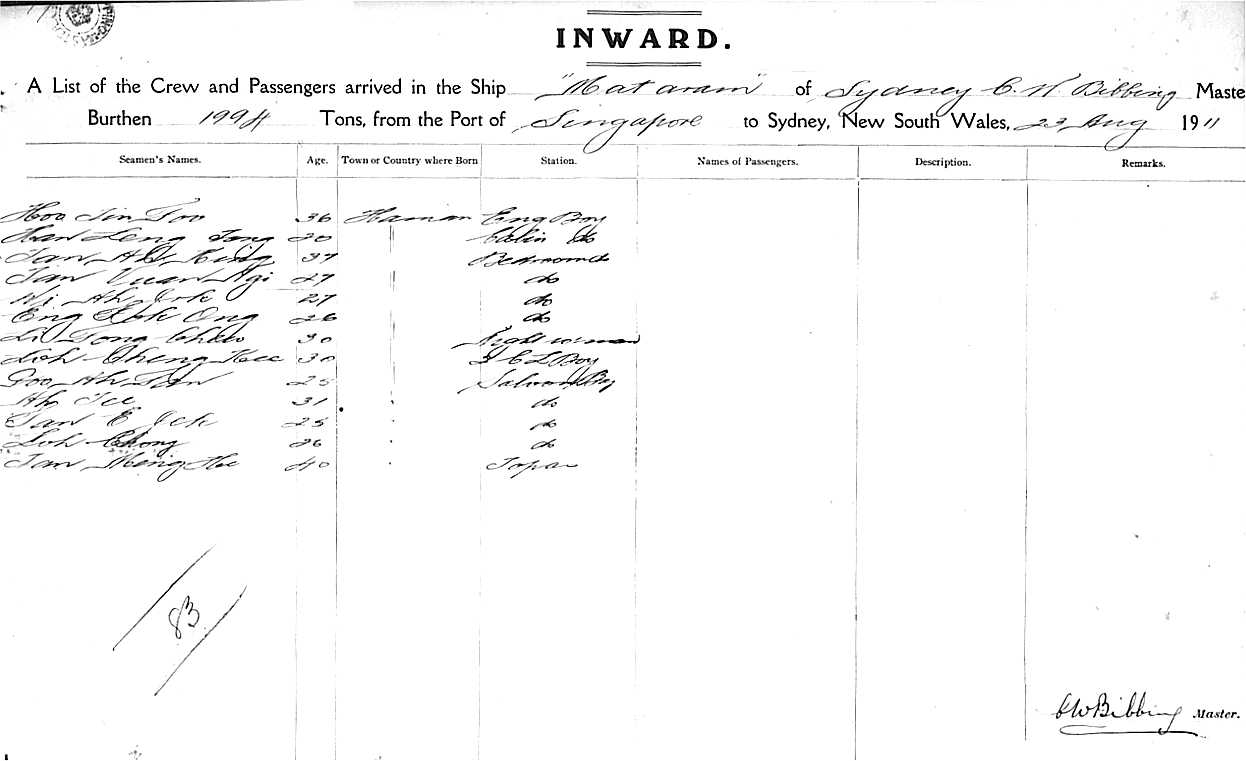 INWARD.
A List of the Crew and Passengers arrived in the Ship "Mataram" of Sydney C. W Bibbing Maste
Burthen 1994 Tons, from the Port of Singapore to Sydney, New South Wales, 23 Aug 1911
Seamen's Names. Age. Town or Country where Born Station. Names of Passengers. Description. Remarks.
Hoo Jin Foo 36 Hainan Eng Boy
Han Leng Tong 20 " Cabin do
Tan Ah King 37 Bedroom do
Tan Yuan Ngi 27 " do
Ah 27 do
Eng Kok Ong 26 do
Li Tong Chew 30 Night
Loh Cheng Kee 30 Boy
Ah 25 Saloon Boy
Ah Tee 31 do
Tan E Jek 25 do
Loh Chong 26 do
Tan Ming Hee 40 Topas
83
C W Bibbing Master.